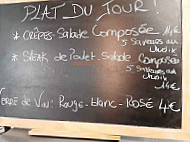 PLAT DU JOUR!
* CRÊPES-Salade Composée 14€
5 Saveurs au
choix
* Steak de Poulet-Salade Composée
5 Saveurs au
choix
14€
Verre de Vin: Rouge-blanc-Rosé 4€